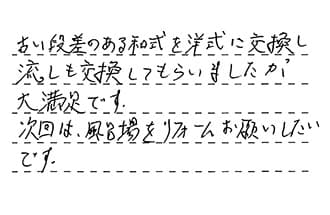 古い段差のある和式を洋式に交換し
流しも交換してもらいましたが
大満足です.
次回は、風呂場をリフォームお願いしたい
です.